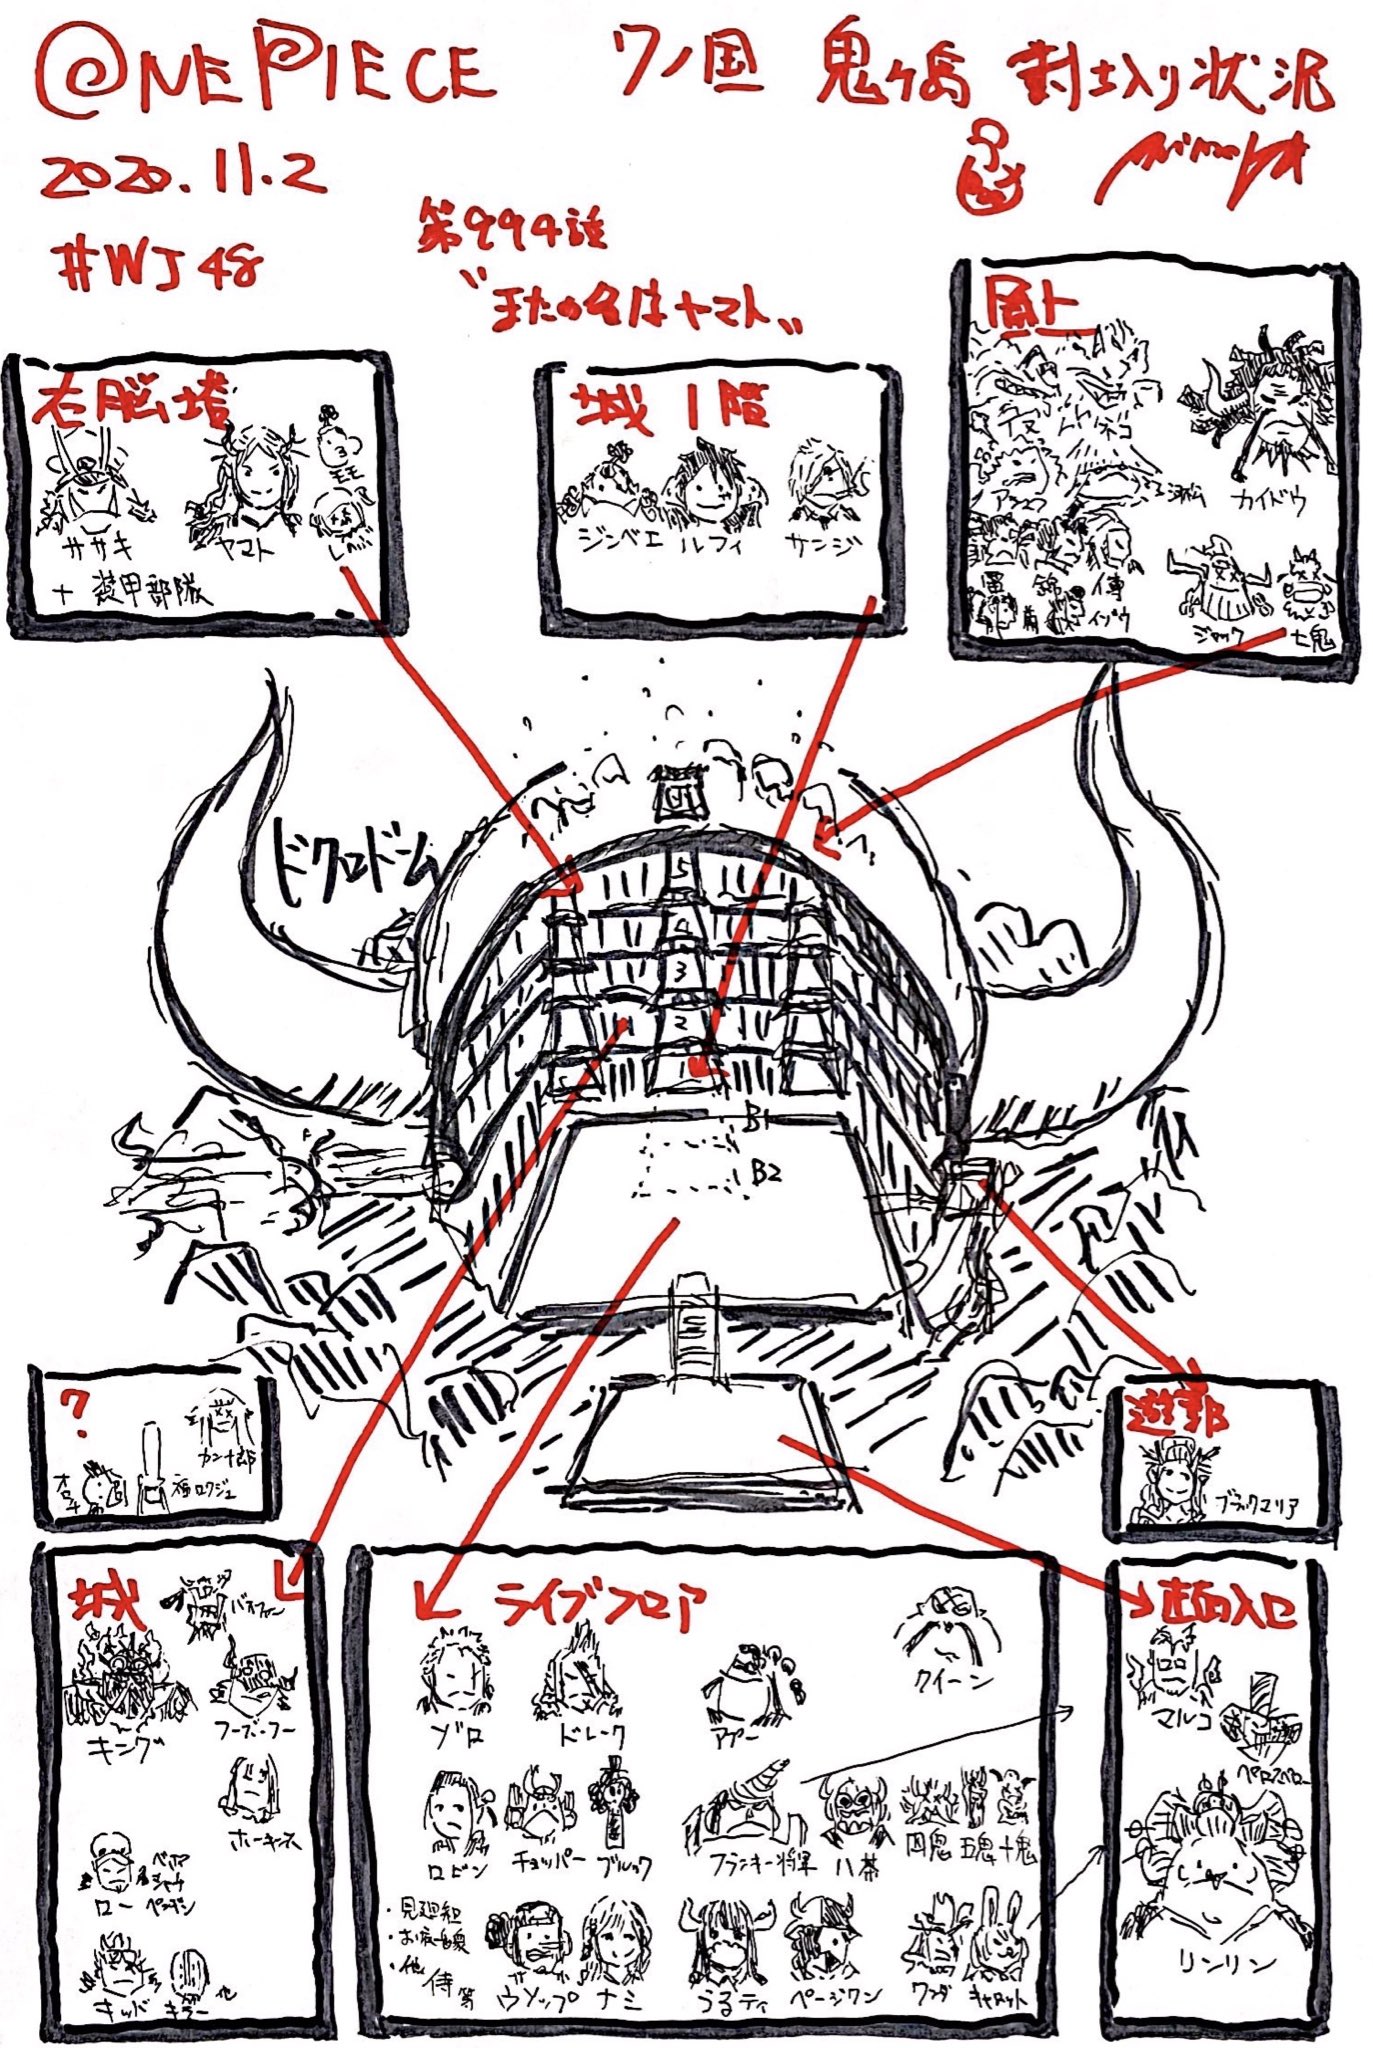 ONE PIECE ワノ国 鬼ヶ島 討ち入り状況
2020.11.2
#WJ48
第994話
"またの名はヤマト"
右脳塔
ササキ
ヤマト
+ 装甲部隊
城1階
ジンベエ
ルフィ
サンジ
屋上
イヌ
ネコ
カイドウ
雷
錦
傳
イゾウ
ジャック
七鬼
ドクロドーム
5
4
3
2
1
B1
B2
?
オロチ
福ロクジュ
カン十郎
遊郭
ブラックマリア
城
バオファン
キング
フーズ・フー
ホーキンス
ロー
ベポ
シャチ
ペンギン
キッド
キラー
他
ライブフロア
ゾロ
ドレーク
アプー
クイーン
ロビン
チョッパー
ブルック
フランキー将軍
八茶
四鬼
五鬼
十鬼
・見廻組
・お庭番衆
・他
侍
等
ウソップ
ナミ
うるティ
ページワン
ワンダ
キャロット
正面入口
マルコ
ペロスペロー
リンリン